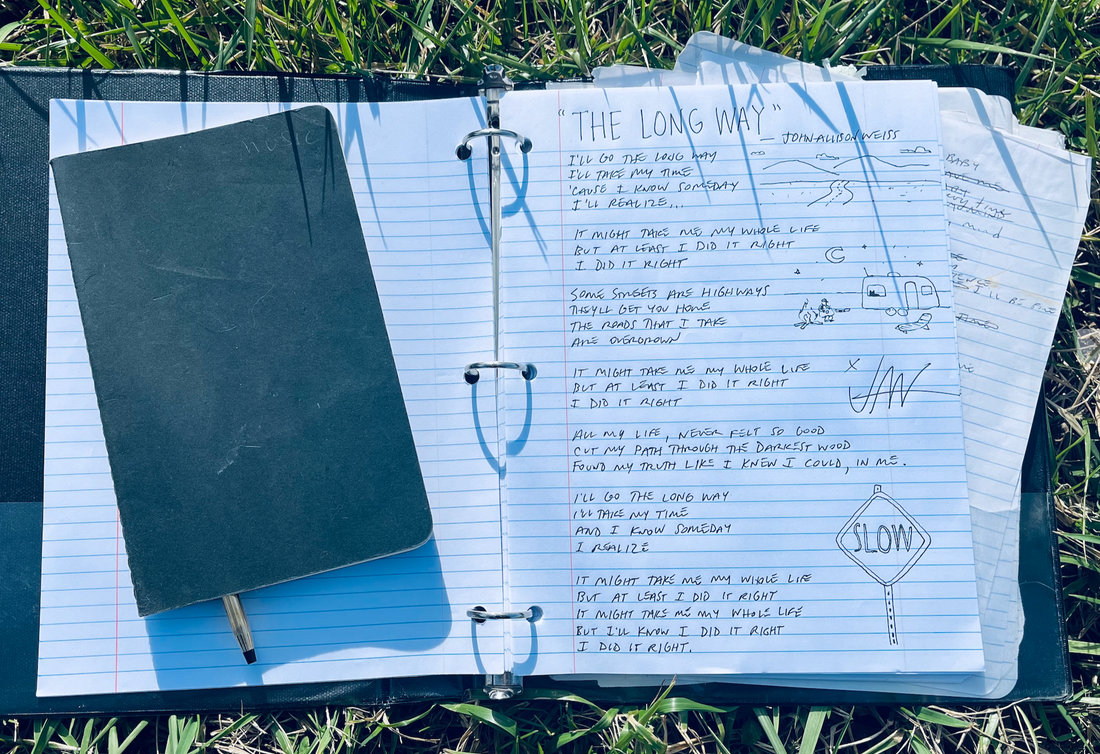 "THE LONG WAY"
— JOHN-ALLISON WEISS
I'LL GO THE LONG WAY
I'LL TAKE MY TIME
'CAUSE I KNOW SOMEDAY
I'LL REALIZE...
IT MIGHT TAKE ME MY WHOLE LIFE
BUT AT LEAST I DID IT RIGHT
I DID IT RIGHT
SOME STREETS ARE HIGHWAYS
THEY'LL GET YOU HOME
THE ROADS THAT I TAKE
ARE OVERGROWN
IT MIGHT TAKE ME MY WHOLE LIFE
BUT AT LEAST I DID IT RIGHT
I DID IT RIGHT
X JAW
ALL MY LIFE, NEVER FELT SO GOOD
CUT MY PATH THROUGH THE DARKEST WOOD
FOUND MY TRUTH LIKE I KNEW I COULD, IN ME.
I'LL GO THE LONG WAY
I'LL TAKE MY TIME
AND I KNOW SOMEDAY
I REALIZE
SLOW
IT MIGHT TAKE ME MY WHOLE LIFE
BUT AT LEAST I DID IT RIGHT
IT MIGHT TAKE ME MY WHOLE LIFE
BUT I'LL KNOW I DID IT RIGHT
I DID IT RIGHT.
BABY
mind